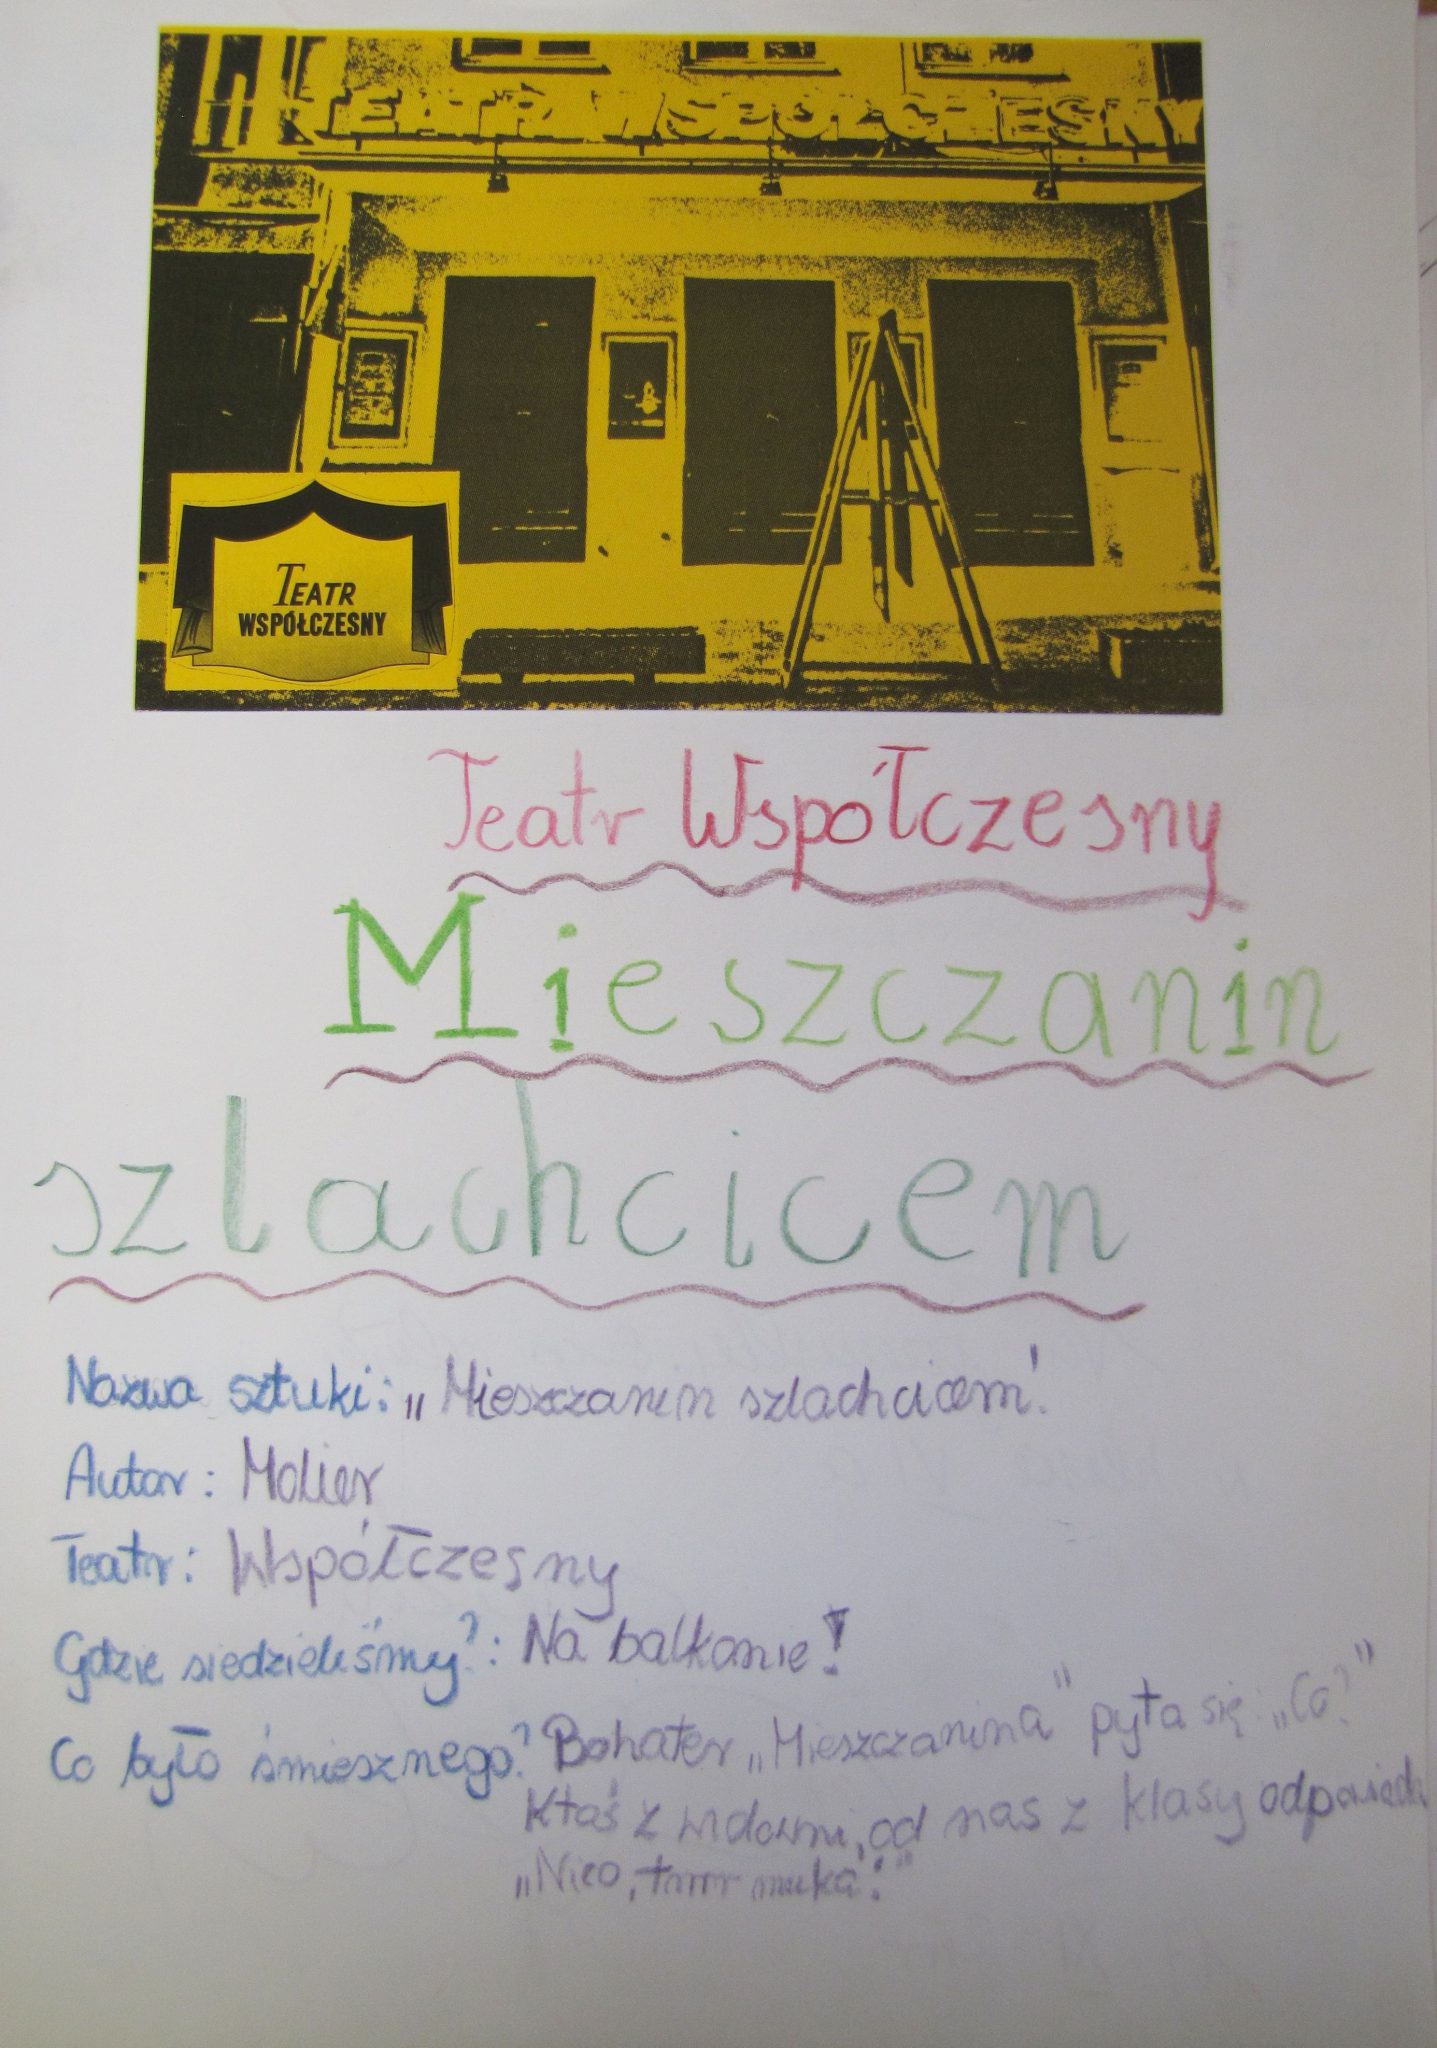 TEATR WSPÓŁCZESNY
TEATR
WSPÓŁCZESNY
Teatr Współczesny
Mieszczanin
szlachcicem
Nazwa sztuki: „Mieszczanin szlachcicem!
Autor: Molier
Teatr: Współczesny
Gdzie siedzieliśmy?: Na balkonie!
Co było śmiesznego? Bohater „Mieszczanina" pyta się: „Co?"
Ktoś z widowni, od nas z klasy odpowiedz
„Nico,